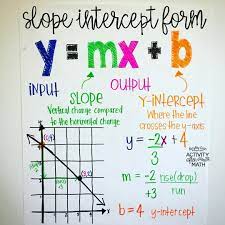 slope intercept form
y=mx+b
INPUT
OUTPUT
SLOPE
Vertical change compared
to the horizontal change
y-intercept
Where the line
crosses the y-axis
y = -2x + 4
3
ACTIVITY
MATH
m = -2 rise(drop)
+3 run
b=4 y-intercept